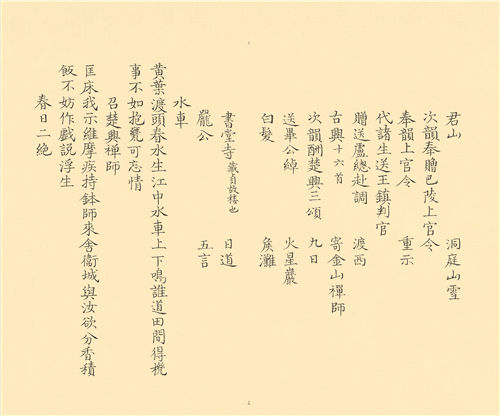 君山　洞庭山靈
次韻奉贈巴陵上官令
奉韻上官令　重示
代諸生送王鎮判官
贈送盧總赴調　渡西
古興十六首　寄金山禪師
次韻酬楚興三頌　九日
送畢公綽　火星巖
白髮　矦灘
書堂寺藏貞故樓也　日道
龐公　五言
水車
黃葉渡頭春水生江中水車上下鳴誰道田間得機
事不如抱甕可忘情
召楚興禪師
匡床我示維摩疾持鉢師來舍衛城與汝欲分香積
飯不妨作戲說浮生
春日二絕